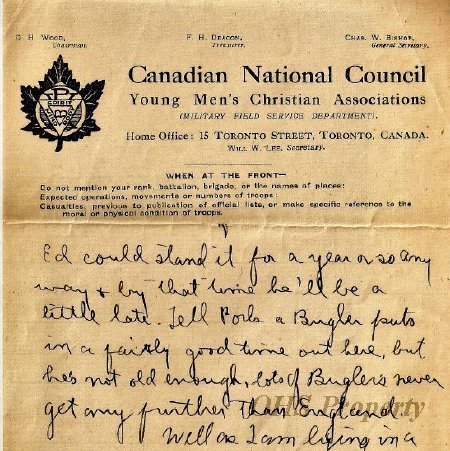 D. H. Wood, Chairman.
F. H. Deacon, Treasurer.
Chas. W. Bishop, General Secretary.
Canadian National Council
Young Men's Christian Associations
(MILITARY FIELD SERVICE DEPARTMENT).
Home Office: 15 TORONTO STREET, TORONTO, CANADA.
Will W. Lee, Secretary.
SPIRIT
WHEN AT THE FRONT—
Do not mention your rank, battalion, brigade, or the names of places:
Expected operations, movements or numbers of troops:
Casualties, previous to publication of official lists, or make specific reference to the
moral or physical condition of troops.
Ed could stand it for a year or so any
way & by that time he'll be a
little late. Tell a Bugler puts
in a fairly good time out here, but
he's not old enough, lots of Buglers never
get any further than England
Well as I am lying in a
OHS Property